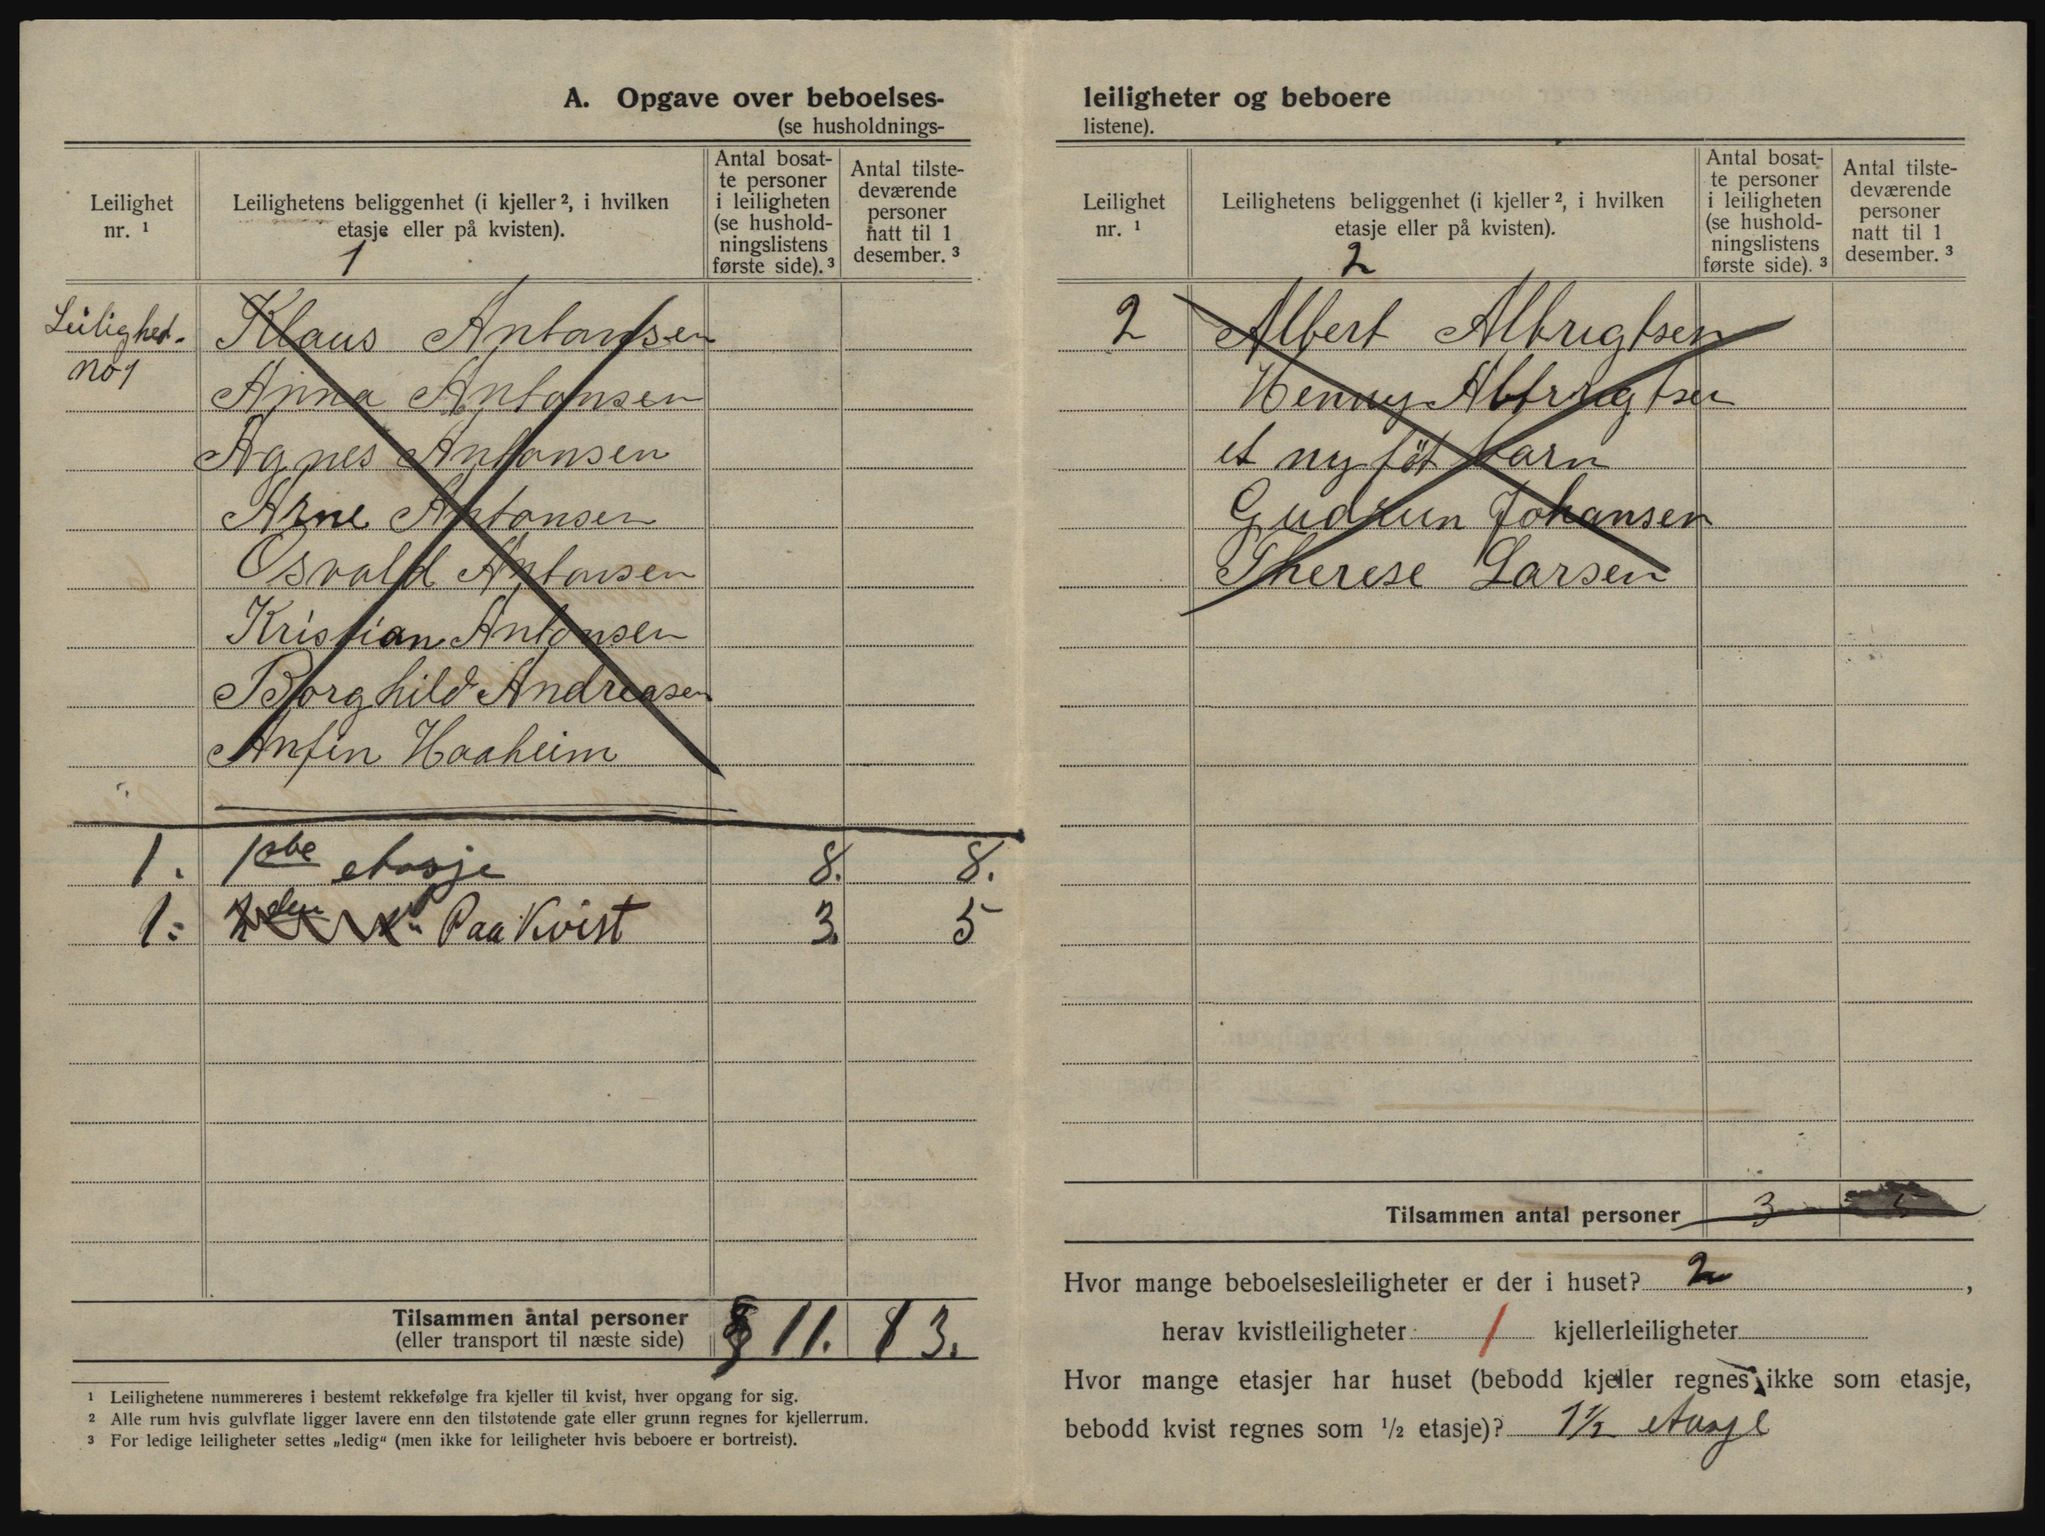 A. Opgave over beboelses-
(se husholdnings-
Leilighet
nr. ¹
Leilighetens beliggenhet (i kjeller ², i hvilken
etasje eller på kvisten).
1
Antal bosat-
te personer
i leiligheten
(se hushold-
ningslistens
første side). ³
Antal tilste-
deværende
personer
natt til 1
desember. ³
Leilighet.
No 1
Klaus Antonsen
Anna Antonsen
Agnes Antonsen
Arne Antonsen
Osvald Antonsen
Kristian Antonsen
Borghild Andreasen
Anfin Haaheim
1. 1ste etasje 8. 8.
1. Paa Kvist 3. 5
Tilsammen antal personer
(eller transport til næste side)
11. 13.
¹ Leilighetene nummereres i bestemt rekkefølge fra kjeller til kvist, hver opgang for sig.
² Alle rum hvis gulvflate ligger lavere enn den tilstøtende gate eller grunn regnes for kjellerrum.
³ For ledige leiligheter settes „ledig“ (men ikke for leiligheter hvis beboere er bortreist).
leiligheter og beboere
listene).
Leilighet
nr. ¹
Leilighetens beliggenhet (i kjeller ², i hvilken
etasje eller på kvisten).
2
Antal bosat-
te personer
i leiligheten
(se hushold-
ningslistens
første side). ³
Antal tilste-
deværende
personer
natt til 1
desember. ³
2 Albert Albrigtsen
Henny Albrigtsen
et nyföt barn
Gudrun Johansen
Therese Larsen
Tilsammen antal personer 3 5
Hvor mange beboelsesleiligheter er der i huset? 2,
herav kvistleiligheter 1 kjellerleiligheter
Hvor mange etasjer har huset (bebodd kjeller regnes ikke som etasje,
bebodd kvist regnes som ½ etasje)? 1½ etasje